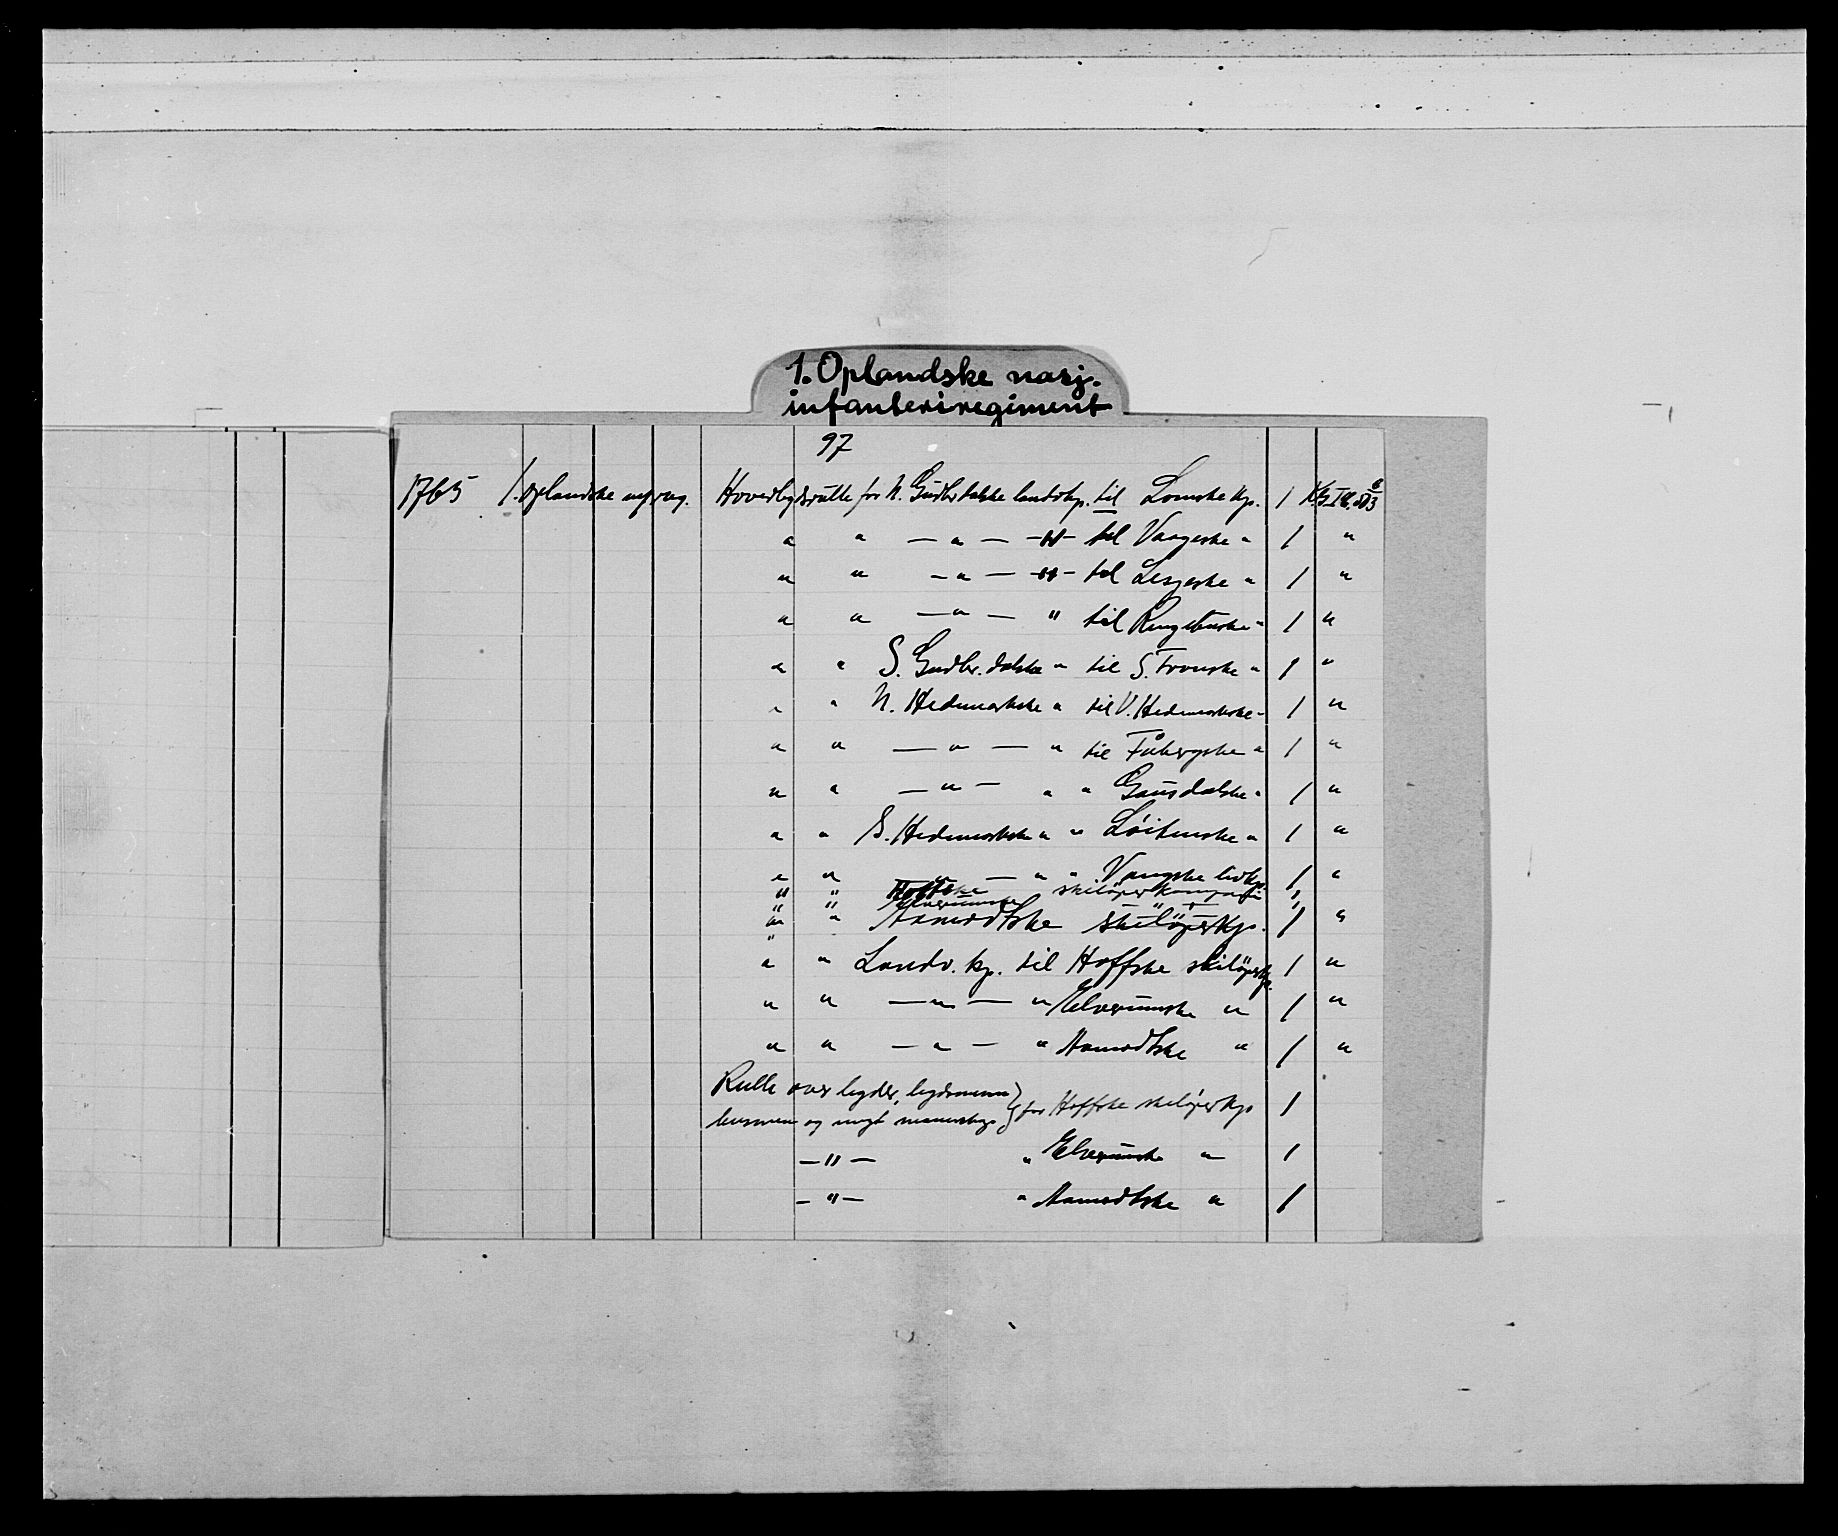 1. Oplandske nasj.
infanteriregiment
97
1765 1. oplandske inf.reg. Hovedlegdsrulle for N. Gudbr.dalske landv.kp. til Lomske kp. 1
" " — " — — " — til Vaageske " 1 "
" " — " — — " — til Lesjeske " 1 "
" " — " — " til Ringebuske " 1 "
" " S. Gudbr.dalske " til S. Fronske " 1 "
" " N. Hedemarkske " til V. Hedemarkske " 1 "
" " — " — " til Fåbergske " 1 "
" " — " — " " Gausdalske " 1 "
" " S. Hedemarkske " " Löitenske " 1 "
" " — " — " " Vangske livkp. 1 "
" " Hoffske skilöperkompagni 1
" " Elverumske — " — 1
" " Aamodtske skilöperkp. 1 "
" " Landv. kp. til Hoffske skilöperkp. 1 "
" " — " — " Elverumske " 1 "
" " — " — " Aamodtske " 1 "
Rulle over legder, legdsmenn
husmenn og ungt mannskap } for Hoffske skilöperkp 1
— " — " Elverumske " 1
— " — " Aamodtske " 1